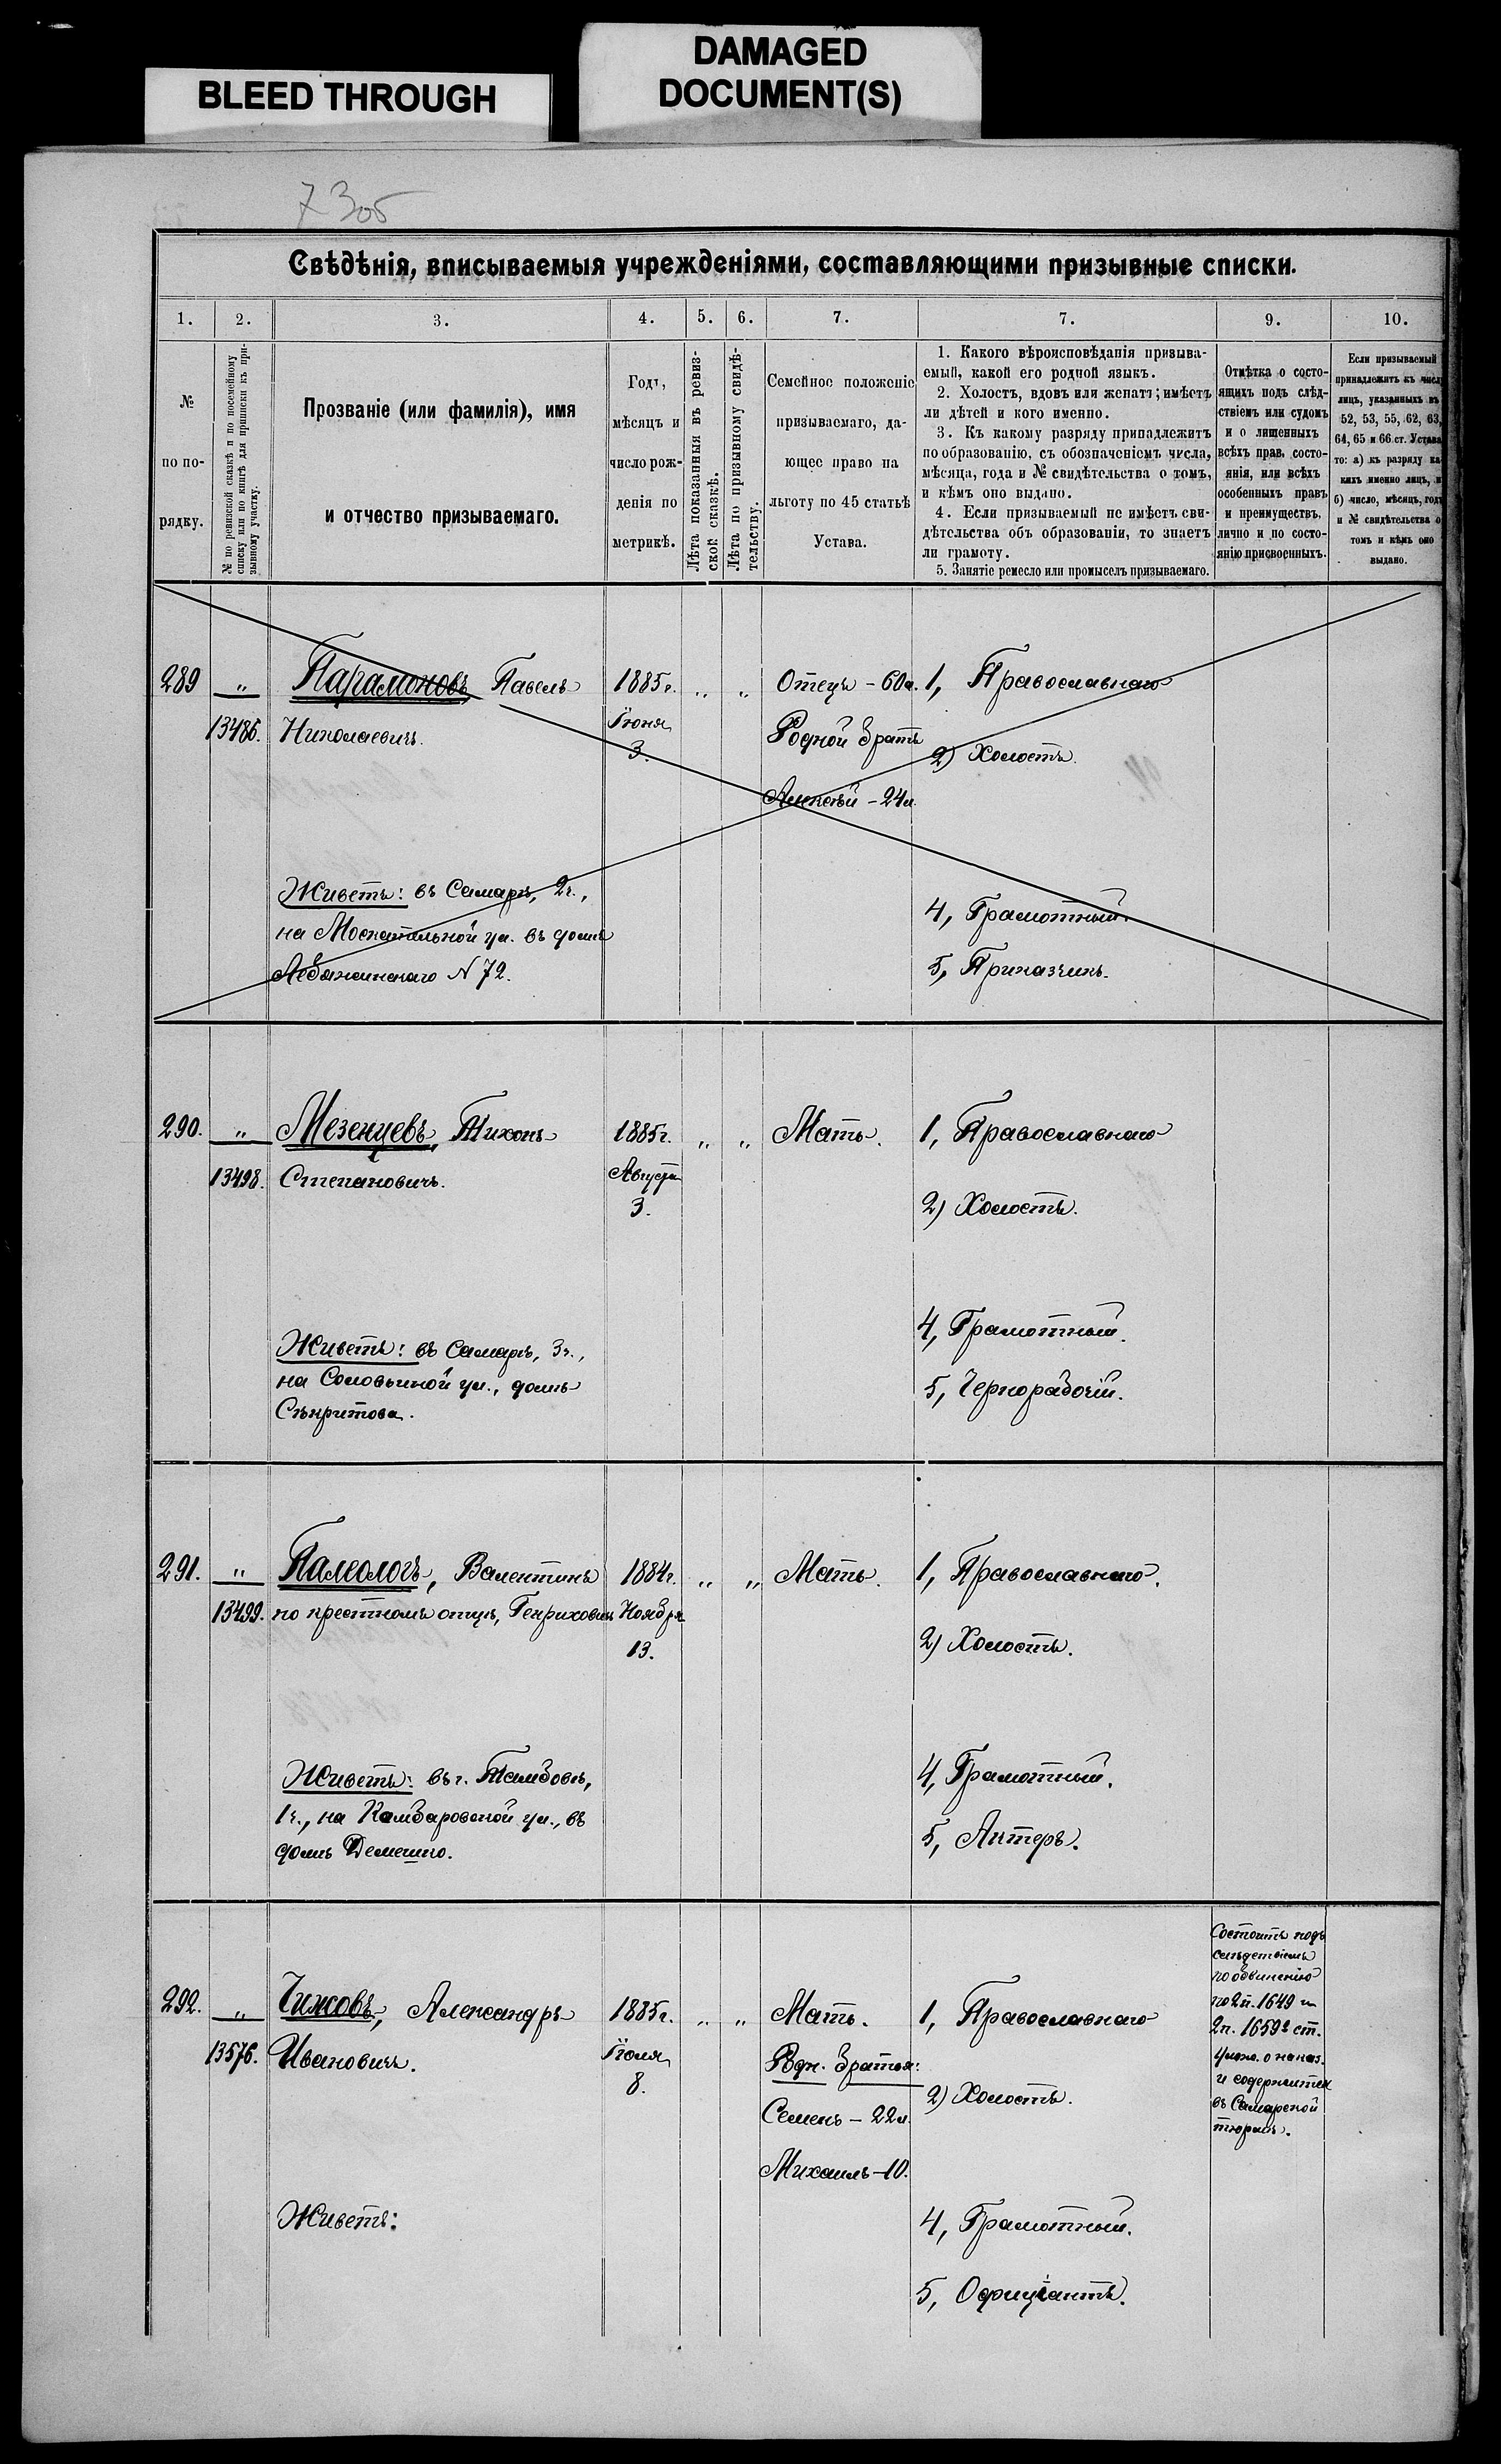 BLEED THROUGH
DAMAGED
DOCUMENT(S)
Свѣдѣнія, вписываемыя учрежденіями, составляющими призывные списки.
1. 2. 3. 4. 5. 6. 7. 7. 9. 10.
№
по по-
рядку.
№ по ревизской сказкѣ и по посемейному
списку или по книгѣ для приписки къ при-
зывному участку.
Прозваніе (или фамилія), имя
и отчество призываемаго.
Годъ,
мѣсяцъ и
число рож-
денія по
метрикѣ.
Лѣта показанныя въ ревиз-
ской сказкѣ.
Лѣта по призывному свидѣ-
тельству.
Семейное положеніе
призываемаго, да-
ющее право на
льготу по 45 статьѣ
Устава.
1. Какого вѣроисповѣданія призыва-
емый, какой его родной языкъ.
2. Холостъ, вдовъ или женатъ; имѣетъ
ли дѣтей и кого именно.
3. Къ какому разряду принадлежитъ
по образованію, съ обозначеніемъ числа,
мѣсяца, года и № свидѣтельства о томъ,
и кѣмъ оно выдано.
4. Если призываемый не имѣетъ сви-
дѣтельства объ образованіи, то знаетъ
ли грамоту.
5. Занятіе ремесло или промыселъ призываемаго.
Отмѣтка о состо-
ящихъ подъ слѣд-
ствіемъ или судомъ
и о лишенныхъ
всѣхъ правъ состо-
янія, или всѣхъ
особенныхъ правъ
и преимуществъ,
лично и по состо-
янію присвоенныхъ.
Если призываемый
принадлежитъ къ числу
лицъ, указанныхъ въ
52, 53, 55, 62, 63,
64, 65 и 66 ст. Устава
то: а) къ разряду ка-
кихъ именно лицъ, и
б) число, мѣсяцъ, годъ
и № свидѣтельства о
томъ и кѣмъ оно
выдано.
289 " Парамоновъ Павелъ 1885г. " " Отецъ – 60л. 1, Православнаго
13486. Николаевичъ. Іюня Родной братъ
3. 2) Холостъ.
Алексѣй – 24л.
Живетъ: въ Самарѣ, 2ч.,
на Москательной ул. въ домѣ 4, Грамотный.
№ 72. 5, Приказчикъ.
290. " Мезенцевъ, Тихонъ 1885г. " " Мать. 1, Православнаго
13498. Степановичъ. Августа
3. 2) Холостъ.
Живетъ: въ Самарѣ, 3ч., 4, Грамотный.
на Соловьиной ул., домъ 5, Чернорабочій.
291. " Палеологъ, Валентинъ 1884г. " " Мать. 1, Православнаго.
13499. по крестномъ отцѣ, Генриховичъ Ноября
13. 2) Холостъ.
Живетъ: въ г. Тамбовѣ, 4, Грамотный.
1ч., на ул., въ
домѣ Демешко. 5, Актеръ.
292. " Чижовъ, Александръ 1885г. " " Мать. 1, Православнаго
13576. Ивановичъ. Іюля Родн. братья:
8. 2) Холостъ.
Семенъ – 22л.
Михаилъ – 10.
Состоитъ подъ
слѣдствіемъ
по обвиненію
по 2п. 1649 и
2п. 1659² ст.
улож. о наказ.
и содержится
въ Самарской
тюрьмѣ.
Живетъ: 4, Грамотный.
5, Офиціантъ.